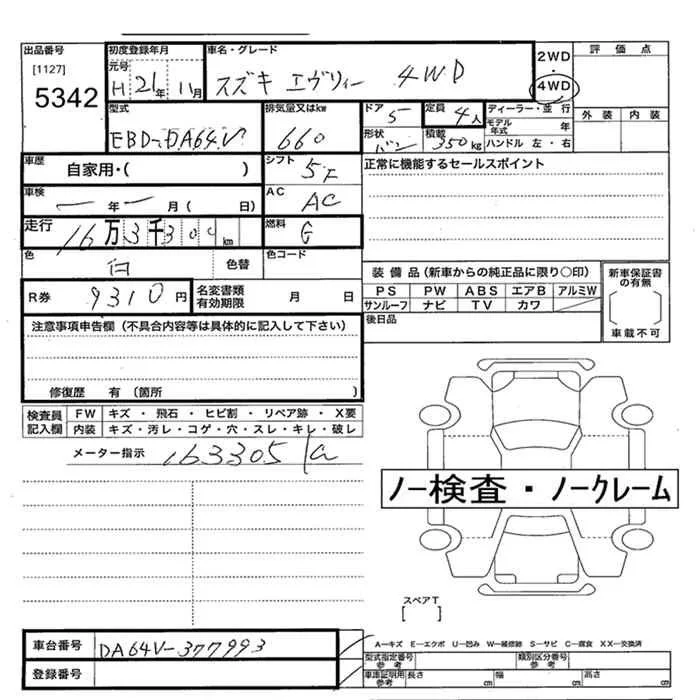 出品番号
[1127]
5342
初度登録年月
元号
H 21年 11月
車名・グレード
スズキ エヴリィー 4WD
2WD
・
4WD
評価点
外装 内装
型式
EBD-DA64V
排気量又はkw
660
ドア
5
形状
バン
定員
4人
積載
350kg
ディーラー・並行
モデル年式 年
ハンドル 左・右
車歴
自家用・( )
シフト
5F
正常に機能するセールスポイント
車検
ー年ー月( 日)
AC
AC
走行
16万3千300km
燃料
G
色
白
色替
色コード
R券
9310円
名変書類
有効期限
月 日
装備品(新車からの純正品に限り○印)
PS PW ABS エアB アルミW
サンルーフ ナビ TV カワ
新車保証書
の有無
[ ]
車載不可
後日品
注意事項申告欄(不具合内容等は具体的に記入して下さい)
修復歴 有(箇所 )
検査員
記入欄
FW キズ・飛石・ヒビ割・リペア跡・X要
内装 キズ・汚レ・コゲ・穴・スレ・キレ・破レ
メーター指示 163305
ノー検査・ノークレーム
スペアT
[ ]
車台番号 DA64V-377993
登録番号
A―キズ E―エクボ U―凹み W―補修跡 S―サビ C―腐食 XX―交換済
型式指定番号
参考
類別区分番号
参考
車庫証明用
参考
長さ cm 幅 cm 高さ cm